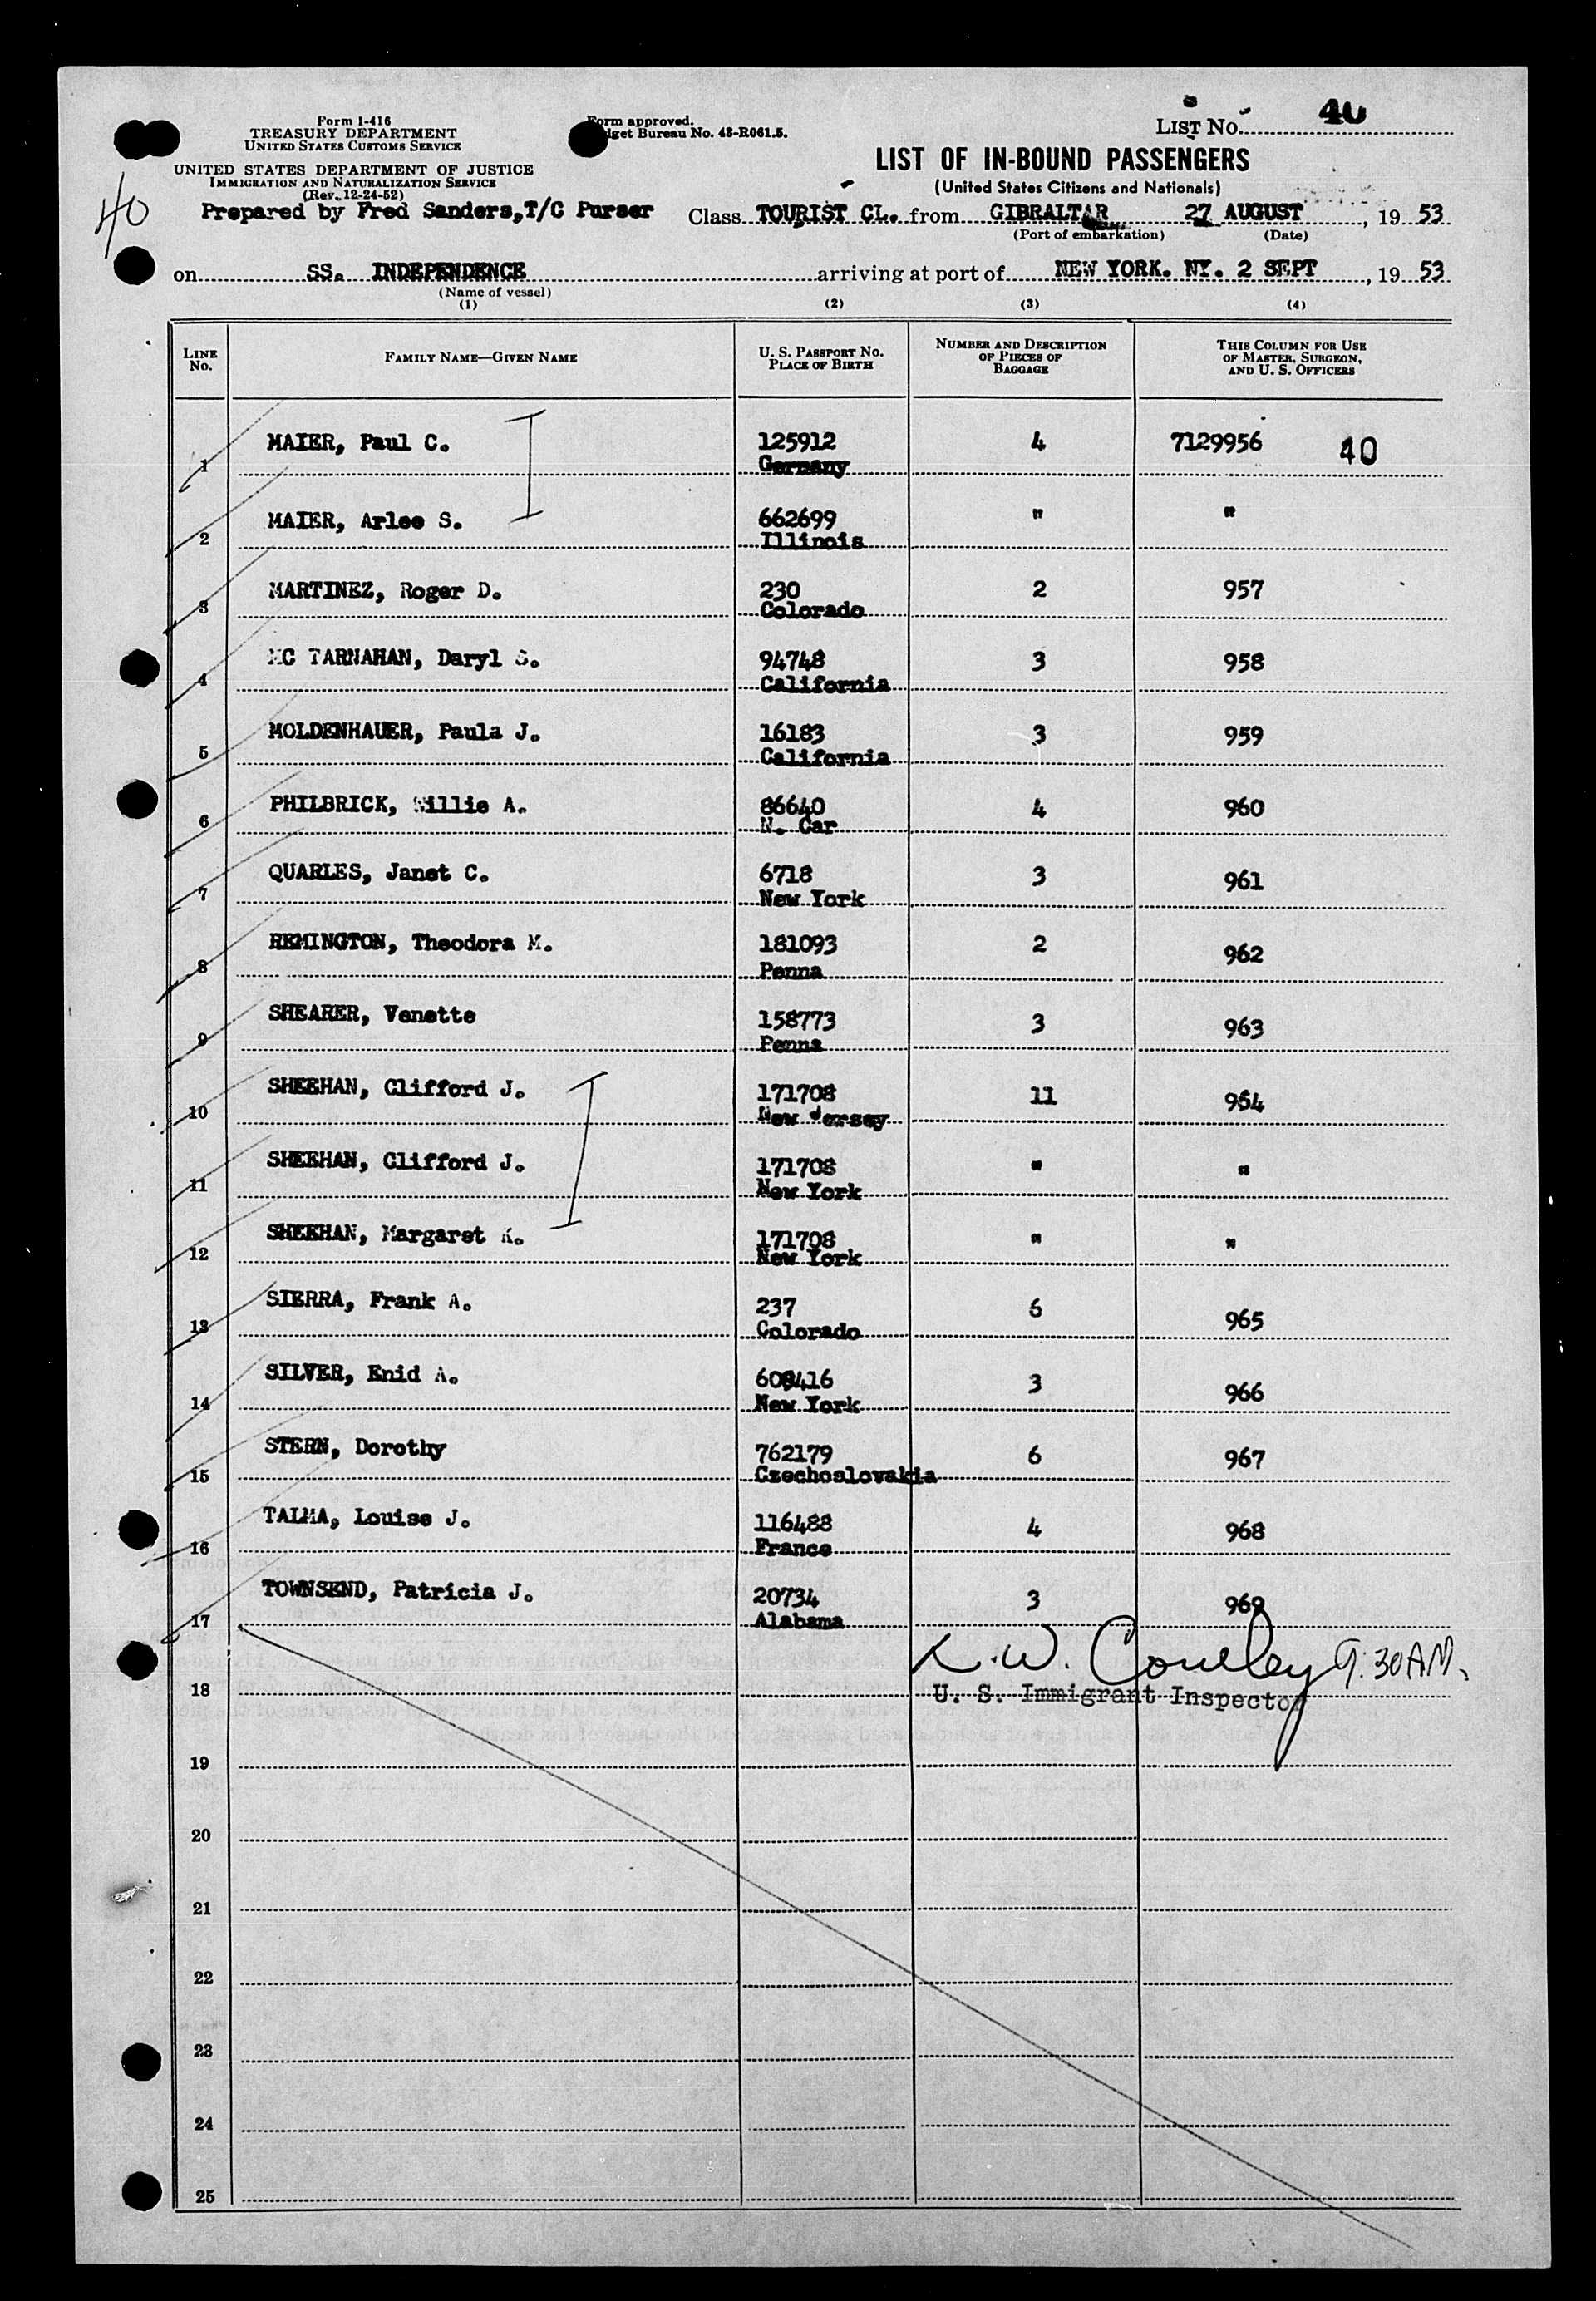 Form I-416
TREASURY DEPARTMENT
UNITED STATES CUSTOMS SERVICE
UNITED STATES DEPARTMENT OF JUSTICE
IMMIGRATION AND NATURALIZATION SERVICE
(Rev. 12-24-52)
Prepared by Fred Sanders, T/C Purser
40
Form approved.
get Bureau No. 43-R061.5.
LIST No. 40
LIST OF IN-BOUND PASSENGERS
(United States Citizens and Nationals)
Class TOURIST CL. from GIBRALTAR 27 AUGUST, 19 53
(Port of embarkation) (Date)
on SS. INDEPENDENCE arriving at port of NEW YORK. NY. 2 SEPT, 19 53
(Name of vessel)
(1) (2) (3) (4)
LINE No. FAMILY NAME—GIVEN NAME U. S. PASSPORT No. PLACE OF BIRTH NUMBER AND DESCRIPTION OF PIECES OF BAGGAGE THIS COLUMN FOR USE OF MASTER, SURGEON, AND U. S. OFFICERS
1 MAIER, Paul C. 125912 4 7129956 40
Germany
2 MAIER, Arlee S. 662699 " "
Illinois
3 MARTINEZ, Roger D. 230 2 957
Colorado
4 MC TARNAHAN, Daryl S. 94748 3 958
California
5 MOLDENHAUER, Paula J. 16183 3 959
California
6 PHILBRICK, Willie A. 86640 4 960
N. Car
7 QUARLES, Janet C. 6718 3 961
New York
8 REMINGTON, Theodora M. 181093 2 962
Penna
9 SHEARER, Venette 158773 3 963
Penna
10 SHEEHAN, Clifford J. 171708 11 964
New Jersey
11 SHEEHAN, Clifford J. 171708 " "
New York
12 SHEEHAN, Margaret K. 171708 " "
New York
13 SIERRA, Frank A. 237 6 965
Colorado
14 SILVER, Enid A. 3 966
New York
15 STERN, Dorothy 762179 6 967
Czechoslovakia
16 TALMA, Louise J. 116488 4 968
France
17 TOWNSEND, Patricia J. 20734 3 969
Alabama
9:30 AM.
18 U. S. Immigrant Inspector
19
20
21
22
23
24
25